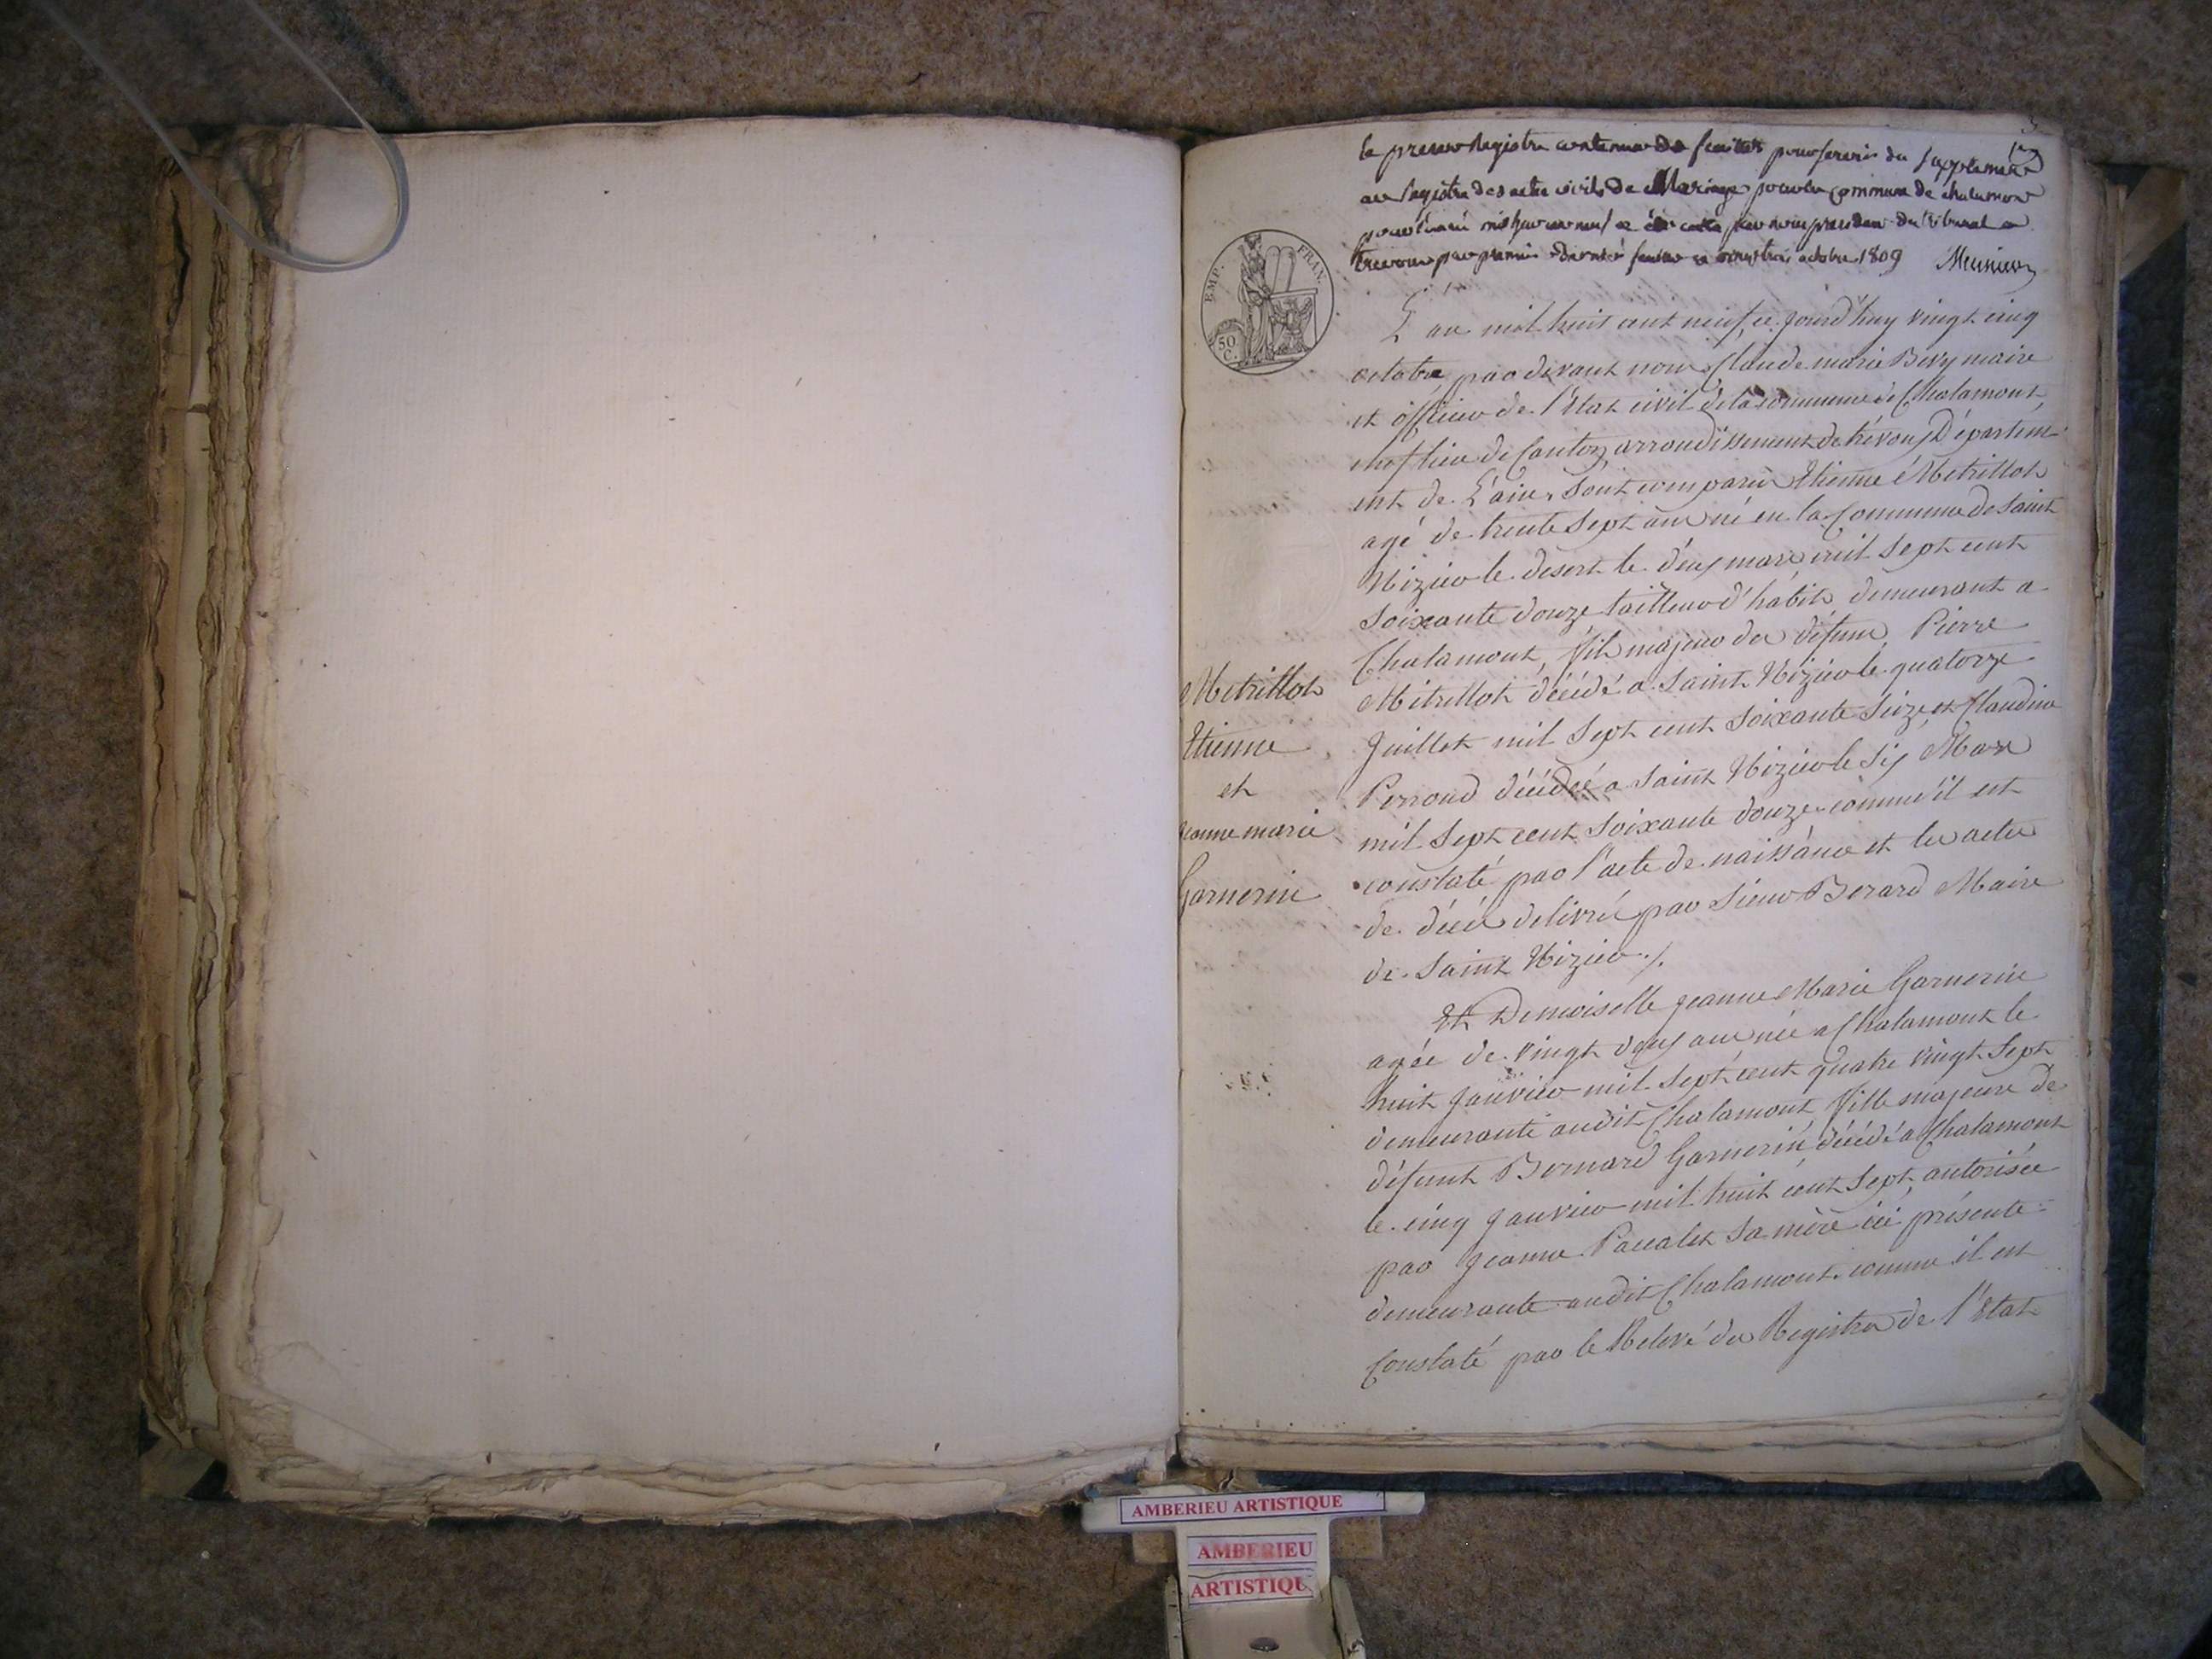 le present Registre contenant de feuillets pour servir du supplement
au Registre des actes civils de Mariage pour la commune de chalamont
pour l'année mil huit cent neuf a été cotté par nous president du tribunal a
trevoux par premier et dernier feuillet ce octobre 1809 Meunier
EMP. FRAN.
50 C.
L'an mil huit cent neuf, ce jourd'huy vingt cinq
octobre par devant nous Claude marie Bevy maire
et officier de l'Etat civil de la commune de Chalamont
chef lieu de Canton, arrondissement de trévoux Départem
ent de L'ain, sont comparus Etienne Métrillot
agé de trente sept ans né en la Commune de Saint
Nizier le desert le deux mars mil sept cent
soixante douze tailleur d'habits demeurant a
Chalamont, fils majeur du défunt Pierre
Métrillot décédé a Saint Nizier le quatorze
Juillet mil sept cent soixante seize et Claudine
Perroud décédée a Saint Nizier le six Mars
mil sept cent soixante douze comme il est
constaté par l'acte de naissance et les actes
de décès delivrés par Sieur Berard Maire
de Saint Nizier ./.
Metrillot
Etienne
et
Jeanne marie
Garnerin
Et Demoiselle Jeanne Marie Garnerin
agée de vingt deux ans née a Chalamont le
huit Janvier mil sept cent quatre vingt sept
demeurante audit Chalamont, fille majeure de
défunt Bernard Garnerin décédé a Chalamont
le cinq Janvier mil huit cent sept, autorisée
par Jeanne Pacalet sa mère ici présente
demeurante audit Chalamont. comme il est
Constaté par le Relevé du Registre de l'Etat
AMBERIEU ARTISTIQUE
AMBERIEU
ARTISTIQU